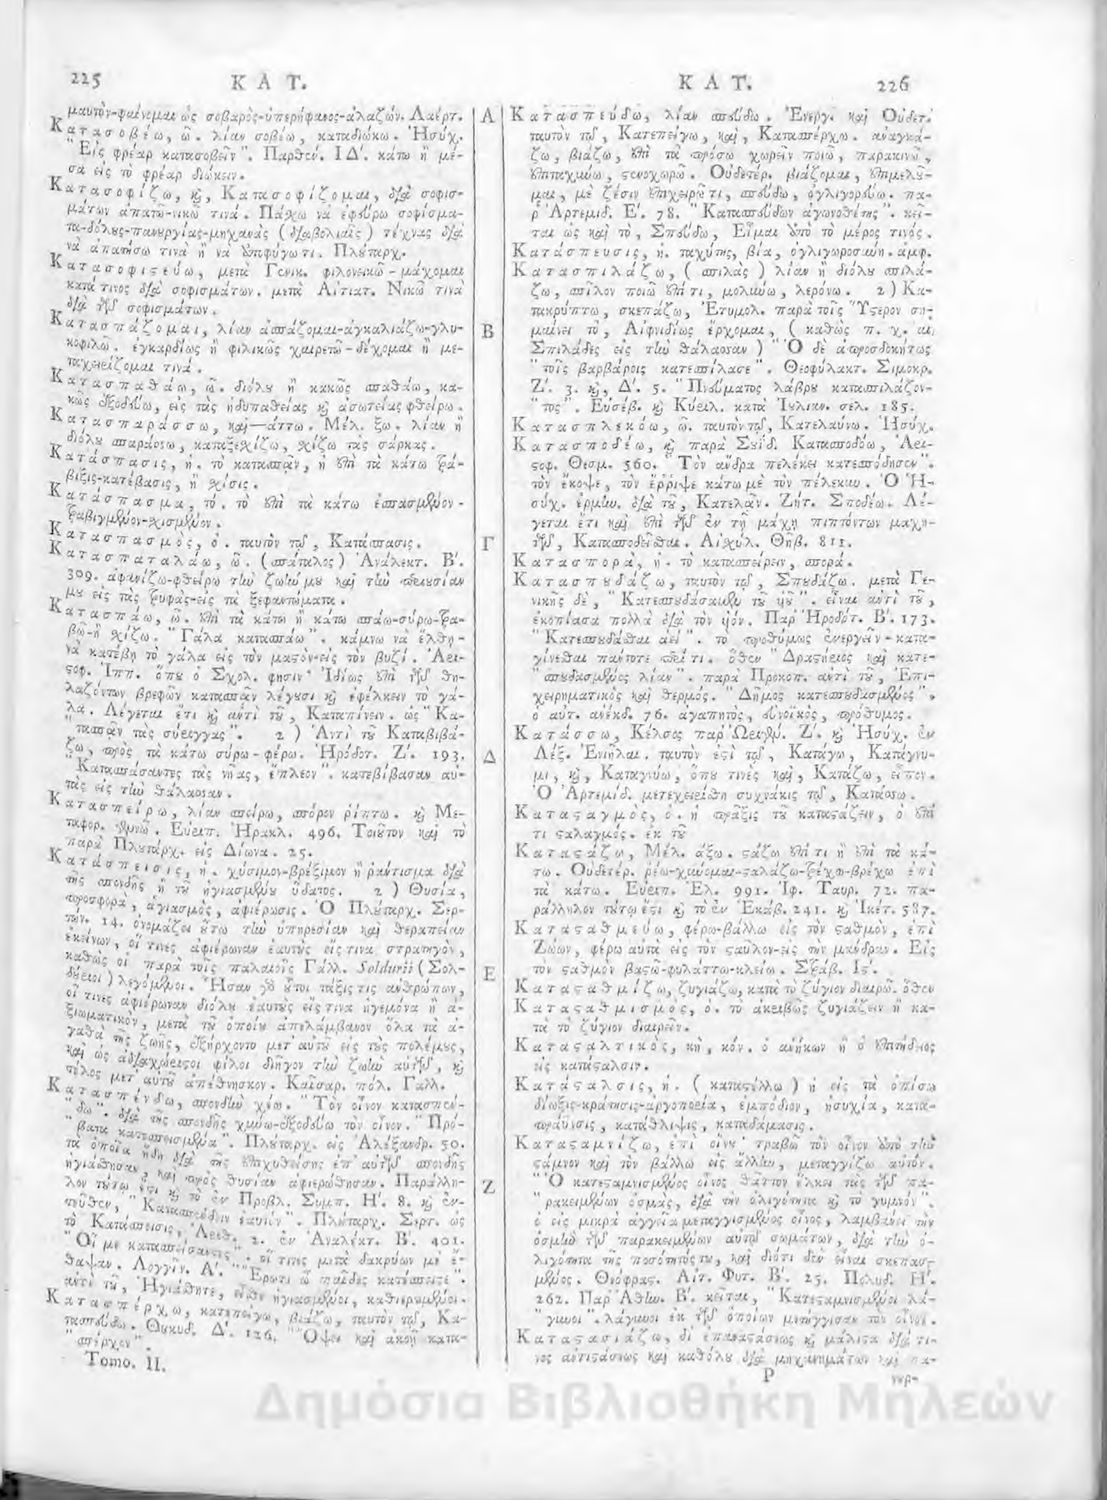 225 ΚΑΤ.
μαυτὸν-φαίνομαι ὡς σοβαρὸς-ὑπερήφανος-ἀλαζών. Λαέρτ.
Κατασοβέω, ῶ. λίαν σοβέω, καταδιώκω. Ἡσύχ.
"Εἰς φρέαρ κατασοβεῖν". Παρθεν. ΙΔ΄. κάτω ἢ μέ-
σα εἰς τὸ φρέαρ διώκειν.
Κατασοφίζω, ϗ, Κατασοφίζομαι, διὰ σοφισ-
μάτων ἀπατῶ-νικῶ τινά. Πάσχω νὰ ἐφεύρω σοφίσμα-
τα-δόλους-πανουργίας-μηχανὰς (διαβολιαῖς) τέχνας διὰ
νὰ ἀπατήσω τινὰ ἢ νὰ ὑποφύγω τι. Πλούταρχ.
Κατασοφιστεύω, μετὰ Γενικ. φιλονεικῶ-μάχομαι
κατά τινος διὰ σοφισμάτων. μετὰ Αἰτιατ. Νικῶ τινὰ
διὰ τῶν σοφισμάτων.
Κατασπάζομαι, λίαν ἀσπάζομαι-ἀγκαλιάζω-γλυ-
κοφιλῶ. ἐγκαρδίως ἢ φιλικῶς χαιρετῶ-δέχομαι ἢ με-
ταχειρίζομαι τινά.
Κατασπαθάω, ῶ. διόλου ἢ κακῶς σπαθάω, κα-
κῶς ἐξοδεύω, εἰς τὰς ἡδυπαθείας ϗ ἀσωτείας φθείρω.
Κατασπαράσσω, καὶ—άττω. Μέλ. ξω. λίαν ἢ
διόλου σπαράσσω, καταξεσχίζω, σχίζω τὰς σάρκας.
Κατάσπασις, ἡ. τὸ κατασπᾶν, ἡ ἐπὶ τὰ κάτω τρά-
βιξις-κατέβασις, ἢ σχίσις.
Κατάσπασμα, τό. τὸ ἐπὶ τὰ κάτω ἐσπασμένον-
τραβιγμένον-σχισμένον.
Κατασπασμός, ὁ. ταυτὸν τῷ, Κατάσπασις.
Κατασπαταλάω, ῶ. (σπάταλος) Ἀνάλεκτ. Β΄.
309. ἀφανίζω-φθείρω τὴν ζωήν μου καὶ τὴν περιουσίαν
μου εἰς τὰς τρυφὰς-εἰς τὰ ξεφαντώματα.
Κατασπάω, ῶ. ἐπὶ τὰ κάτω ἢ κάτω σπάω-σύρω-τρα-
βῶ-ἢ σχίζω. "Γάλα κατασπάω". κάμνω νὰ ἔλθῃ-
νὰ κατέβῃ τὸ γάλα εἰς τὸν μαστὸν-εἰς τὸν βυζί. Ἀρι-
στοφ. Ἱππ. ὅπου ὁ Σχολ. φησίν· Ἰδίως ἐπὶ τῶν θη-
λαζόντων βρεφῶν κατασπᾶν λέγουσι ϗ ἐφέλκειν τὸ γά-
λα. Λέγεται ἔτι ϗ ἀντὶ τοῦ, Καταπίνειν. ὡς "Κα-
"τασπᾶν τὰς σύριγγας". 2) Ἀντὶ τοῦ Καταβιβά-
ζω, πρὸς τὰ κάτω σύρω-φέρω. Ἡρόδοτ. Ζ΄. 193.
"Κατασπάσαντες τὰς νῆας, ἔπλεον". κατεβίβασαν αὐ-
τὰς εἰς τὴν θάλασσαν.
Κατασπείρω, λίαν σπείρω, σπόρον ῥίπτω. ϗ Με-
ταφορ. γεννῶ. Εὐριπ. Ἡρακλ. 496. Τοιοῦτον καὶ τὸ
παρὰ Πλουτάρχ. εἰς Δίωνα. 25.
Κατάσπεισις, ἡ. χύσιμον-βρέξιμον ἢ ῥάντισμα διὰ
τῆς σπονδῆς ἢ τοῦ ἡγιασμένου ὕδατος. 2) Θυσία,
προσφορά, ἁγιασμός, ἀφιέρωσις. Ὁ Πλούταρχ. Σερ-
των. 14. ὀνομάζει οὕτω τὴν ὑπηρεσίαν καὶ θεραπείαν
ἐκείνων, οἵ τινες ἀφιέρωναν ἑαυτοὺς εἴς τινα στρατηγόν,
καθὼς οἱ παρὰ τοῖς παλαιοῖς Γάλλ. Soldurii (Σολ-
δύριοι) λεγόμενοι. Ἦσαν γὰρ οὗτοι τάξις τις ἀνθρώπων,
οἵ τινες ἀφιέρωναν διόλου ἑαυτοὺς εἴς τινα ἡγεμόνα ἢ ἀ-
ξιωματικόν, μετὰ τοῦ ὁποίου ἀπελάμβανον ὅλα τὰ ἀ-
γαθὰ τῆς ζωῆς, ἐξήρχοντο μετ' αὐτοῦ εἰς τοὺς πολέμους,
καὶ ὡς ἀδιαχώριστοι φίλοι διῆγον τὴν ζωὴν αὐτῶν, ϗ
τέλος μετ' αὐτοῦ ἀπέθνησκον. Καίσαρ. πόλ. Γαλλ.
Κατασπένδω, σπονδὴν χέω. "Τὸν οἶνον κατασπέν-
"δω". διὰ τῆς σπονδῆς χύνω-ἐξοδεύω τὸν οἶνον. "Πρό-
"βατα κατασπεισμένα". Πλούταρχ. εἰς Ἀλέξανδρ. 50.
τὰ ὁποῖα ἤδη διὰ τῆς ἐπιχυθείσης ἐπ' αὐτῶν σπονδῆς
ἡγιάσθησαν, καὶ πρὸς θυσίαν ἀφιερώθησαν. Παράλλη-
λον τούτῳ ἐστὶ ϗ τὸ ἐν Προβλ. Συμπ. Η΄. 8. ϗ ἐν-
τεῦθεν, "Κατασπένδειν ἑαυτόν". Πλούταρχ. Σερτ. ὡς
τὸ Κατάσπεισις, Λεξ. 2. ἐν Ἀναλέκτ. Β. 401.
"Οἵ με κατασπείσαντες". οἵ τινες μετὰ δακρύων μὲ ἔ-
θαψαν. Λογγῖν. Α΄. "Ἔρωτι ὦ παῖδες κατέσπεισε".
ἀντὶ τοῦ, Ἡγιάσθητε, εἶσθε ἡγιασμένοι, καθιερωμένοι.
Κατασπέρχω, κατεπείγω, βιάζω, ταυτὸν τῷ, Κα-
τασπεύδω. Θουκυδ. Δ΄. 126. "Ὄψει καὶ ἀκοῇ κατα-
"σπέρχον".
Tomo. II.
Α
Β
Γ
Δ
Ε
Ζ
ΚΑΤ. 226
Κατασπεύδω, λίαν σπεύδω. Ἐνεργ. καὶ Οὐδετ.
ταυτὸν τῷ, Κατεπείγω, καὶ, Κατασπέρχω. ἀναγκά-
ζω, βιάζω, ἐπὶ τὰ πρόσω χωρεῖν ποιῶ, παρακινῶ,
ἐπιταχύνω, στενοχωρῶ. Οὐδετέρ. βιάζομαι, ἐπιμελοῦ-
μαι, μὲ ζέσιν ἐπιχειρῶ τι, σπεύδω, ὀγλιγορεύω. πα-
ρ' Ἀρτεμιδ. Ε΄. 78. "Κατασπεύδων ἀγωνοθέτης". κεῖ-
ται ὡς καὶ τὸ, Σπεύδω, Εἶμαι ἀπὸ τὸ μέρος τινός.
Κατάσπευσις, ἡ. ταχύτης, βία, ὀγλιγωροσύνη. ἀμφ.
Κατασπιλάζω, (σπιλὰς) λίαν ἢ διόλου σπιλά-
ζω, σπῖλον ποιῶ ἐπί τι, μολύνω, λερόνω. 2) Κα-
τακρύπτω, σκεπάζω, Ἐτυμολ. παρὰ τοῖς Ὕστερον ση-
μαίνει τὸ, Αἰφνιδίως ἔρχομαι, (καθὼς π. χ. αἱ
Σπιλάδες εἰς τὴν θάλασσαν) "Ὁ δὲ ἀπροσδοκήτως
"τοῖς βαρβάροις κατεσπίλασε". Θεοφύλακτ. Σιμοκρ.
Ζ΄. 3. ϗ, Δ΄. 5. "Πνεύματος λάβρου κατασπιλάζον-
"τος". Εὐσέβ. ϗ Κύριλ. κατὰ Ἰουλιαν. σελ. 185.
Κατασπλεκόω, ῶ. ταυτὸν τῷ, Κατελαύνω. Ἡσύχ.
Κατασποδέω, ϗ παρὰ Σουΐδ. Κατασποδόω, Ἀρι-
στοφ. Θεσμ. 560. "Τὸν ἄνδρα πελέκει κατεσπόδησεν".
τὸν ἔκοψε, τὸν ἔρριψε κάτω μὲ τὸν πέλεκυν. Ὁ Ἡ-
σύχ. ἑρμην. διὰ τοῦ, Κατελᾶν. Ζήτ. Σποδέω. Λέ-
γεται ἔτι καὶ ἐπὶ τῶν ἐν τῇ μάχῃ πιπτόντων μαχη-
τῶν, Κατασποδεῖσθαι. Αἰσχύλ. Θήβ. 811.
Κατασπορά, ἡ. τὸ κατασπείρειν, σπορά.
Κατασπουδάζω, ταυτὸν τῷ, Σπουδάζω. μετὰ Γε-
νικῆς δέ, "Κατεσπουδάσαμεν τοῦ ἠοῦ". εἶναι ἀντὶ τοῦ,
ἐκοπίασα πολλὰ διὰ τὸν ἠόν. Παρ' Ἡροδότ. Β΄. 173.
"Κατεσπουδάσθαι ἀεί". τὸ προθύμως ἐνεργεῖν-κατα-
γίνεσθαι πάντοτε περί τι. ὅθεν "Δραστήριος καὶ κατε-
"σπουδασμένος λίαν". παρὰ Προκοπ. ἀντὶ τοῦ, Ἐπι-
χειρηματικὸς καὶ θερμός. "Δῆμος κατεσπουδασμένος".
ὁ αὐτ. ἀνέκδ. 76. ἀγαπητός, εὐνοϊκός, πρόθυμος.
Κατάσσω, Κέλσος παρ' Ὠριγέν. Ζ΄. ϗ Ἡσύχ. ἐν
Λέξ. Ἐνιῆλαι. ταυτὸν ἐστὶ τῷ, Κατάγω, Κατάγνυ-
μι, ϗ, Καταγνύω, ὅπου τινὲς καὶ, Κατάζω, εἶπον.
Ὁ Ἀρτεμίδ. μετεχειρίσθη συχνάκις τῷ, Κατάσσω.
Κατασταγμός, ὁ. ἡ πρᾶξις τοῦ καταστάζειν, ὁ ἐπί
τι σταλαγμός. ἐκ τοῦ
Καταστάζω, Μέλ. άξω. στάζω ἐπί τι ἢ ἐπὶ τὰ κά-
τω. Οὐδετέρ. ῥέω-χύνομαι-σταλάζω-τρέχω-βρέχω ἐπὶ
τὰ κάτω. Εὐριπ. Ἑλ. 991. Ἰφ. Ταυρ. 72. πα-
ράλληλον τούτῳ ἐστὶ ϗ τὸ ἐν Ἑκάβ. 241. ϗ Ἱκέτ. 587.
Κατασταθμεύω, φέρω-βάλλω εἰς τὸν σταθμόν, ἐπὶ
Ζώων, φέρω αὐτὰ εἰς τὸν σταῦλον-εἰς τὴν μάνδραν. Εἰς
τὸν σταθμὸν βαστῶ-φυλάττω-κλείω. Στράβ. Ιϛ.
Κατασταθμίζω, ζυγιάζω, κατὰ τὸ ζύγιον διαιρῶ. ὅθεν
Κατασταθμισμός, ὁ. τὸ ἀκριβῶς ζυγιάζειν ἢ κα-
τὰ τὸ ζύγιον διαιρεῖν.
Κατασταλτικός, κή, κόν. ὁ ἀνήκων ἢ ὁ ἐπιτήδειος
εἰς κατάσταλσιν.
Κατάσταλσις, ἡ. (καταστέλλω) ἡ εἰς τὰ ὀπίσω
δίωξις-κράτησις-ἀργοπορία, ἐμπόδιον, ἡσυχία, κατα-
πράϋνσις, κατάθλιψις, καταδάμασις.
Κατασταμνίζω, ἐπὶ οἴνου τραβῶ τὸν οἶνον ἀπὸ τὴν
στάμνον καὶ τὸν βάλλω εἰς ἄλλην, μεταγγίζω αὐτόν.
"Ὁ κατεσταμνισμένος οἶνος θᾶττον ἕλκει τὰς τῶν πα-
"ρακειμένων ὀσμάς, διὰ τὴν ὀλιγότητα ϗ τὸ γυμνόν".
ὁ εἰς μικρὰ ἀγγεῖα μεταγγισμένος οἶνος, λαμβάνει τὴν
ὀσμὴν τῶν παρακειμένων αὐτῷ σωμάτων, διὰ τὴν ὀ-
λιγότητα τῆς ποσότητός του, καὶ διότι δὲν εἶναι σκεπασ-
μένος. Θεόφραστ. Αἰτ. Φυτ. Β΄. 25. Πολυδ. Η΄.
262. Παρ' Ἀθην. Β΄. κεῖται, "Κατεσταμνισμένοι λά-
"γυνοι". λάγυνοι ἐκ τῶν ὁποίων μετάγγισαν τὸν οἶνον.
Καταστασιάζω, δι' ἐπαναστάσεως ϗ μάλιστα διά τι-
νος ἀντιστάσεως καὶ καθόλου διὰ μηχανημάτων καὶ πα-
Ρ νουρ-
Δημόσια Βιβλιοθήκη Μηλεών